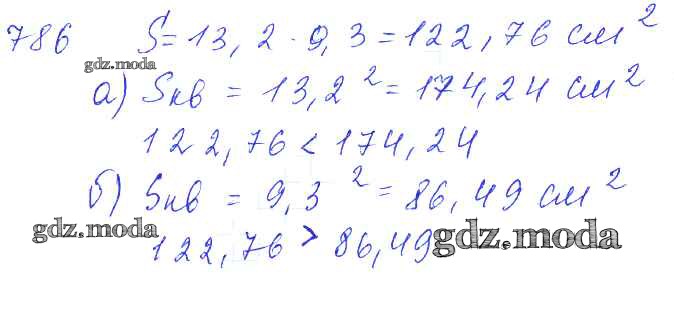 786 S = 13,2 · 9,3 = 122,76 см²
gdz.moda
а) Sкв = 13,2² = 174,24 см²
122,76 < 174,24
б) Sкв = 9,3² = 86,49 см²
gdz.moda
122,76 > 86,49
gdz.moda